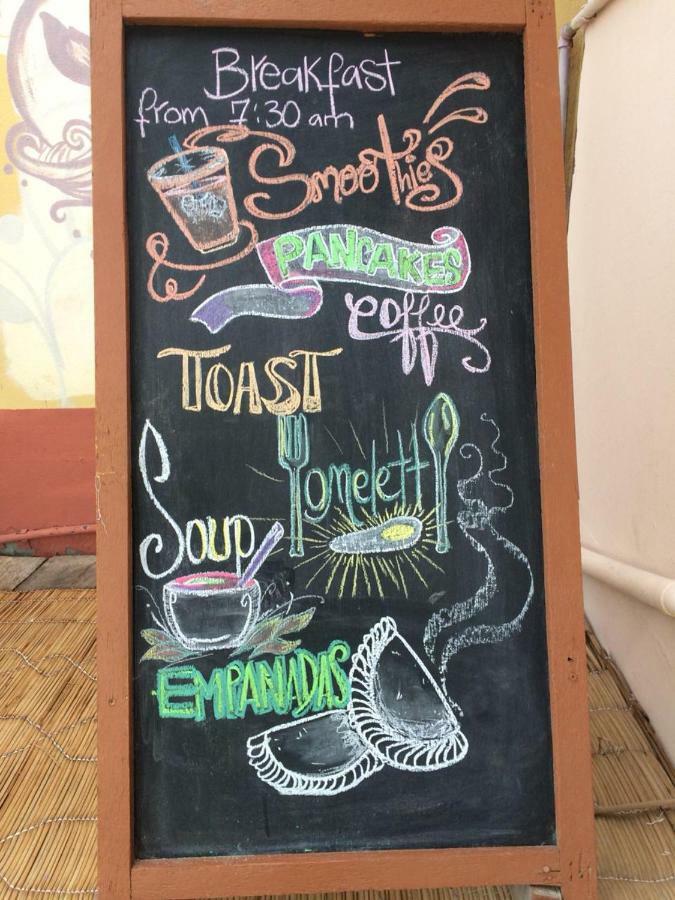 Breakfast
from 7:30 am
Smoothies
PANCAKES
coffee
TOAST
omelett
Soup
EMPANADAS